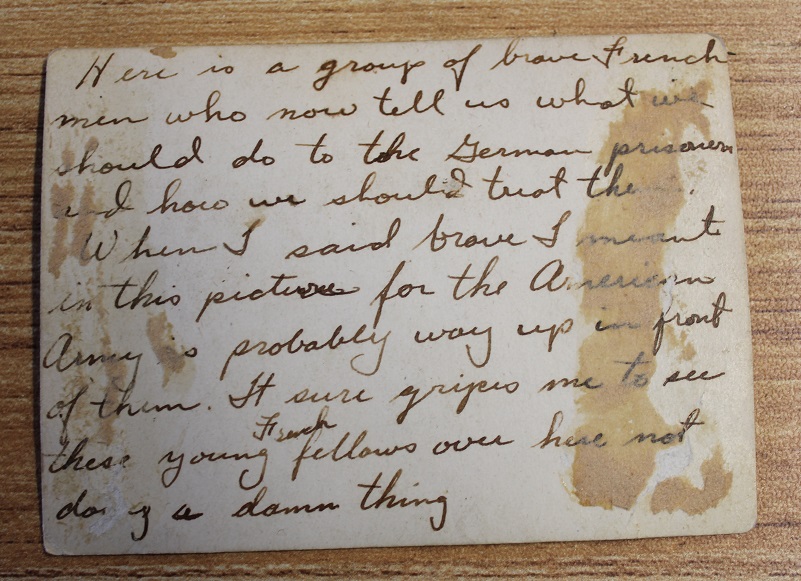 Here is a group of brave French-
men who now tell us what we
should do to the German prisoners
and how we should treat them.
When I said brave I meant
in this picture for the American
Army is probably way up in front
of them. It sure gripes me to see
these young French fellows over here not
doing a damn thing